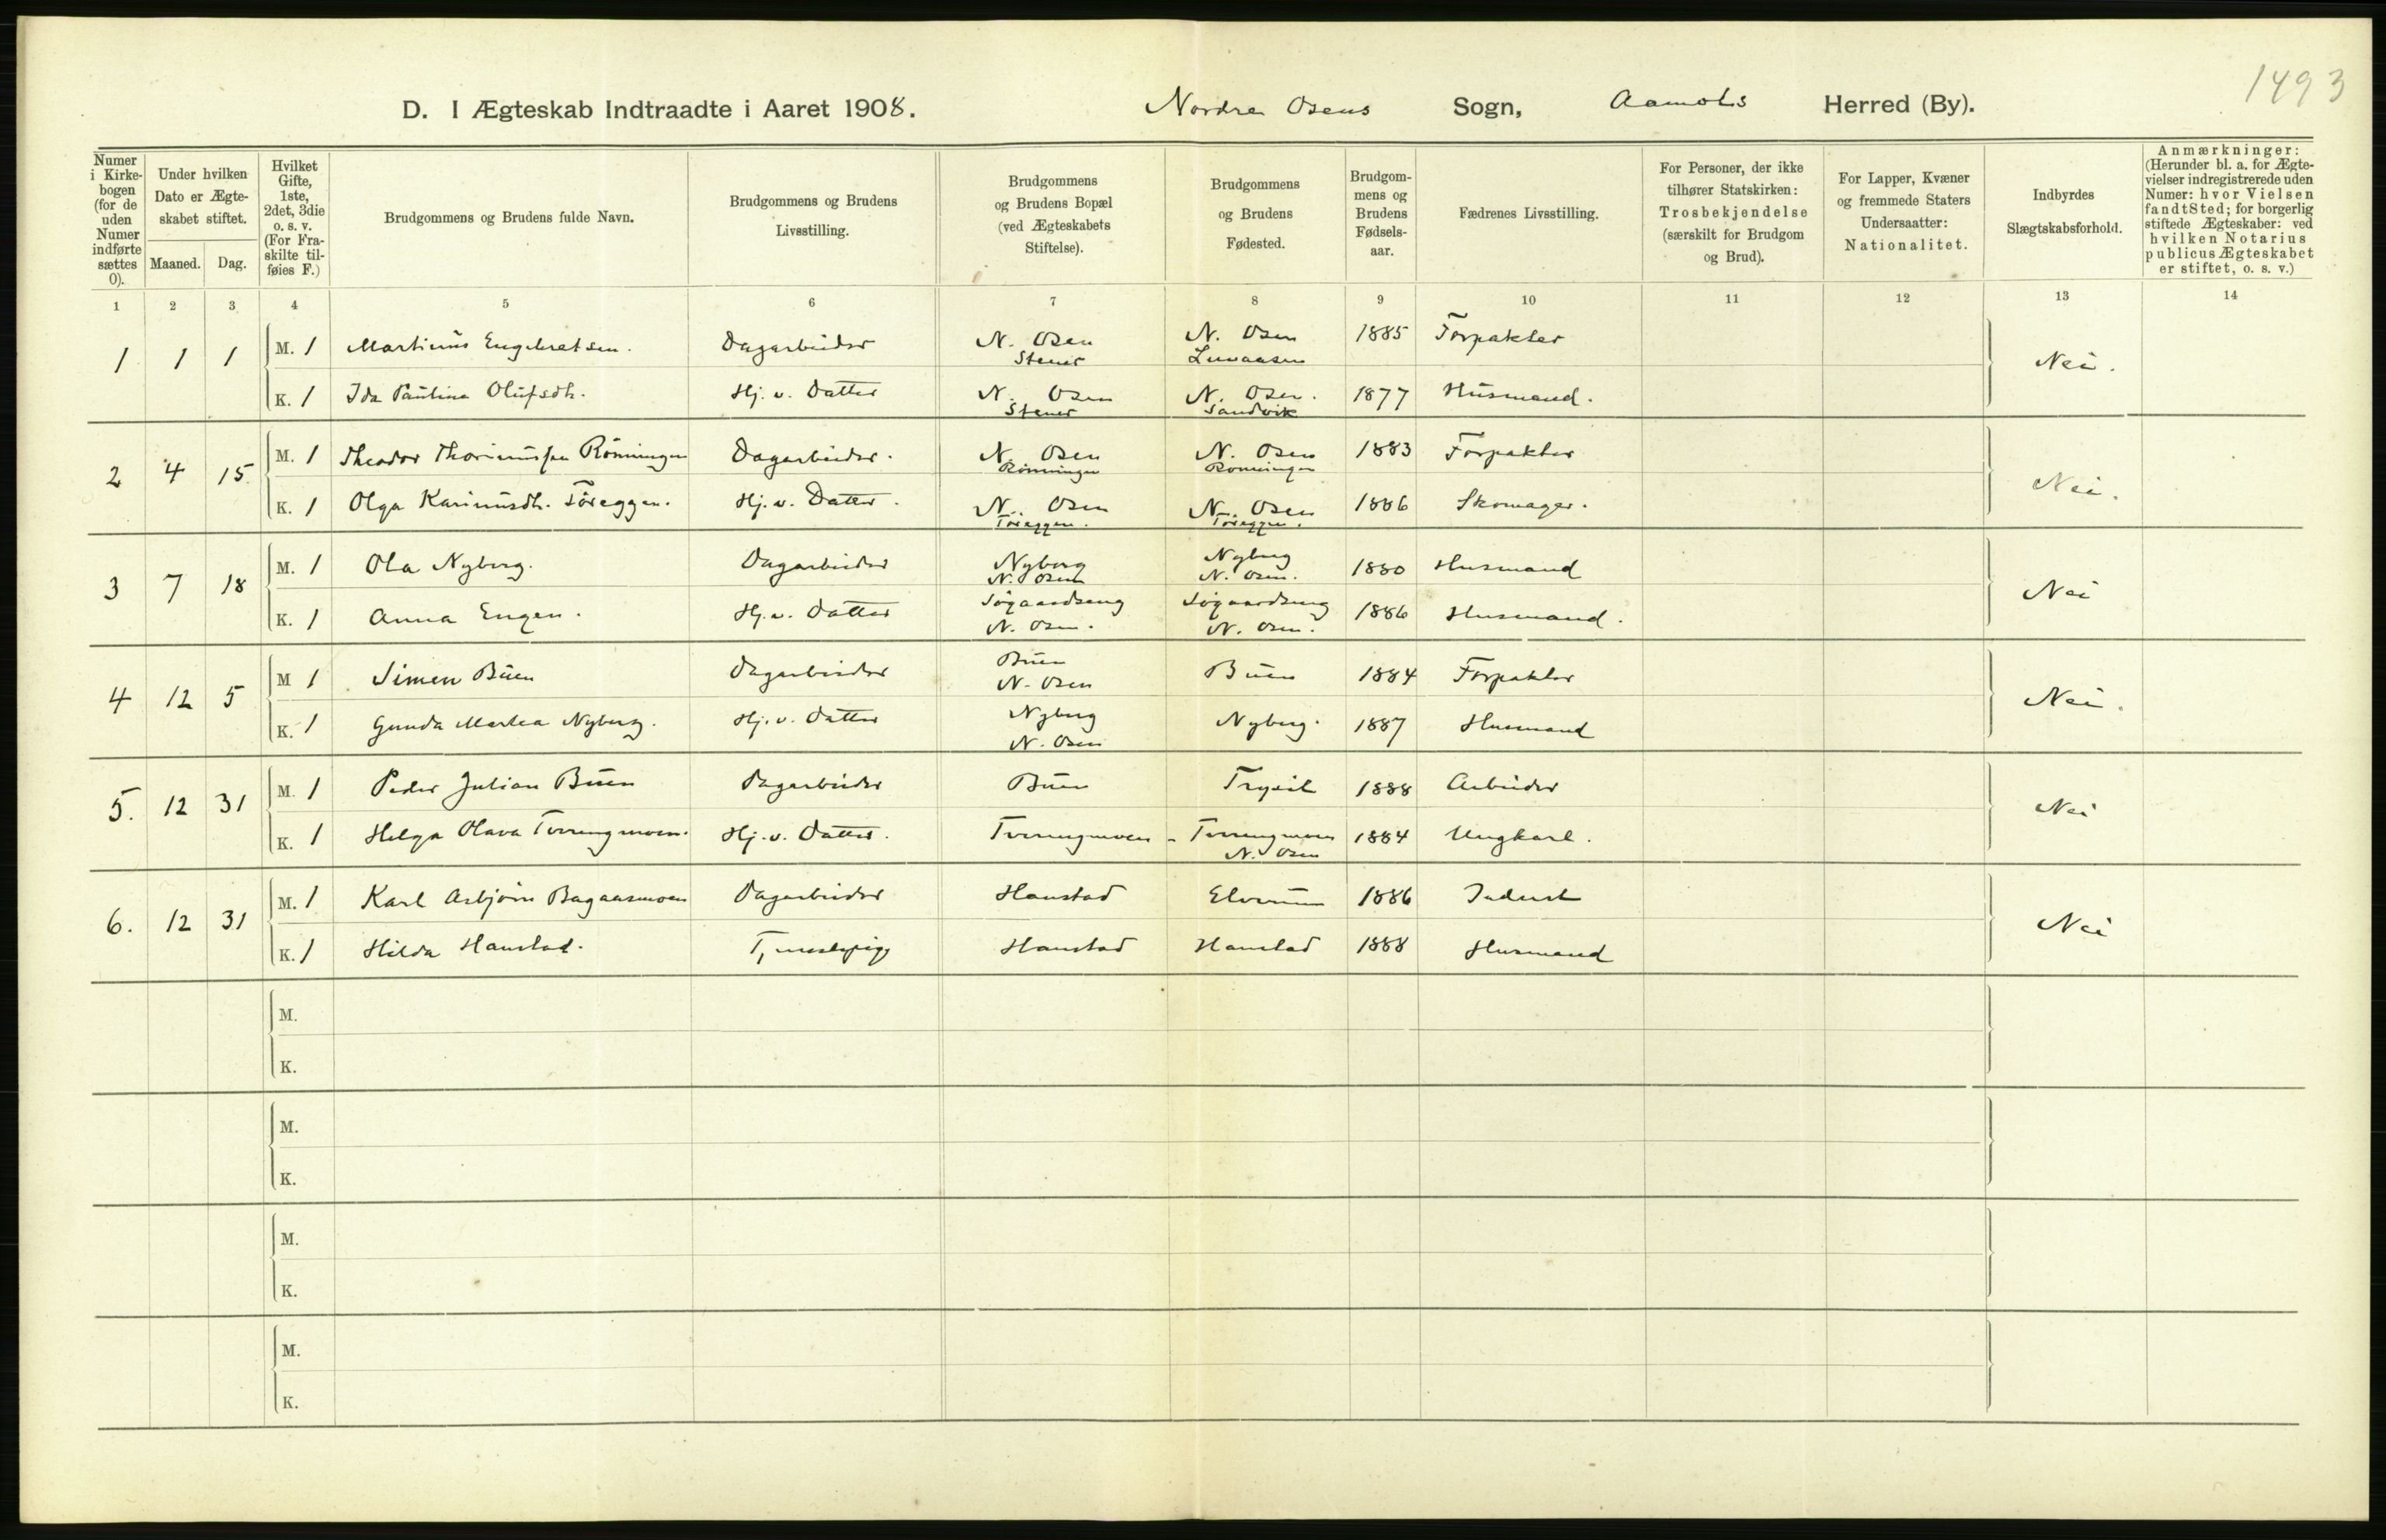 1493
D. I Ægteskab Indtraadte i Aaret 1908. Nordre Osens Sogn, Aamots Herred (By).
Numer i Kirkebogen (for de uden Numer indførte sættes 0).
Under hvilken Dato er Ægteskabet stiftet.
Maaned. Dag.
Hvilket Gifte, 1ste, 2det, 3die o. s. v. (For Fraskilte tilføies F.)
Brudgommens og Brudens fulde Navn.
Brudgommens og Brudens Livsstilling.
Brudgommens og Brudens Bopæl (ved Ægteskabets Stiftelse).
Brudgommens og Brudens Fødested.
Brudgommens og Brudens Fødselsaar.
Fædrenes Livsstilling.
For Personer, der ikke tilhører Statskirken: Trosbekjendelse (særskilt for Brudgom og Brud).
For Lapper, Kvæner og fremmede Staters Undersaatter: Nationalitet.
Indbyrdes Slægtskabsforhold.
Anmærkninger: (Herunder bl. a. for Ægtevielser indregistrerede uden Numer: hvor Vielsen fandt Sted; for borgerlig stiftede Ægteskaber: ved hvilken Notarius publicus Ægteskabet er stiftet, o. s. v.)
1 2 3 4 5 6 7 8 9 10 11 12 13 14
1 1 1 M. 1 Martinus Engebretsen. Dagarbeider N. Osen Stener N. Osen 1885 Forpakter Nei.
K. 1 Ida Paulina Olufsdt. Hj. v. Datter N. Osen Stener N. Osen. Sandvik 1877 Husmand.
2 4 15 M. 1 Theodor Thorinussen Rönningen Dagarbeider. N. Osen Rönningen N. Osen Rönningen 1883 Forpakter Nei.
K. 1 Olga Karinusdt. Töreggen. Hj. v. Datter. N. Osen Töreggen. N. Osen Töreggen. 1886 Skomager.
3 7 18 M. 1 Ola Nyberg. Dagarbeider Nyberg N. Osen Nyberg N. Osen. 1880 Husmand Nei
K. 1 Anna Engen. Hj. v. Datter N. Osen. N. Osen. 1886 Husmand.
4 12 5 M 1 Simen Buen Dagarbeider Buen N. Osen Buen 1884 Forpakter Nei.
K. 1 Gunda Martea Nyberg. Hj. v. Datter Nyberg N. Osen Nyberg. 1887 Husmand
5. 12 31 M. 1 Peder Julian Buen Dagarbeider Buen Trysil 1888 Arbeider Nei
K. 1 Helga Olava Tverrengmoen. Hj. v. Datter. Tverrengmoen - Tverrengmoen N. Osen 1884 Ungkarl.
6. 12 31 M. 1 Karl Asbjörn Bagaasmoen Dagarbeider Hanstad Elverum 1886 Inderst Nei
K. 1 Hilda Hanstad. Tjenestepige Hanstad Hanstad 1888 Husmand
M.
K.
M.
K.
M.
K.
M.
K.